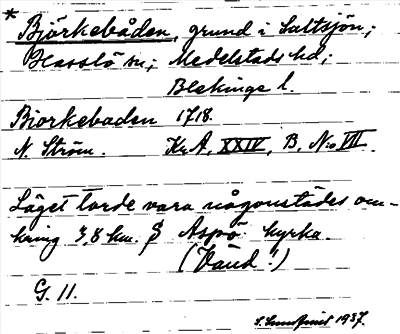 * Björkebåden, grund i Saltsjön;
Hasslö sn; Medelstads hd;
Blekinge l.
Biorkebaden 1718.
N. Ström. Kr.A. XXIV, B, No VII.
Läget torde vara någonstädes om-
kring 3,8 km. S Aspö kyrka.
(Vänd!)
G. 11.
1937.